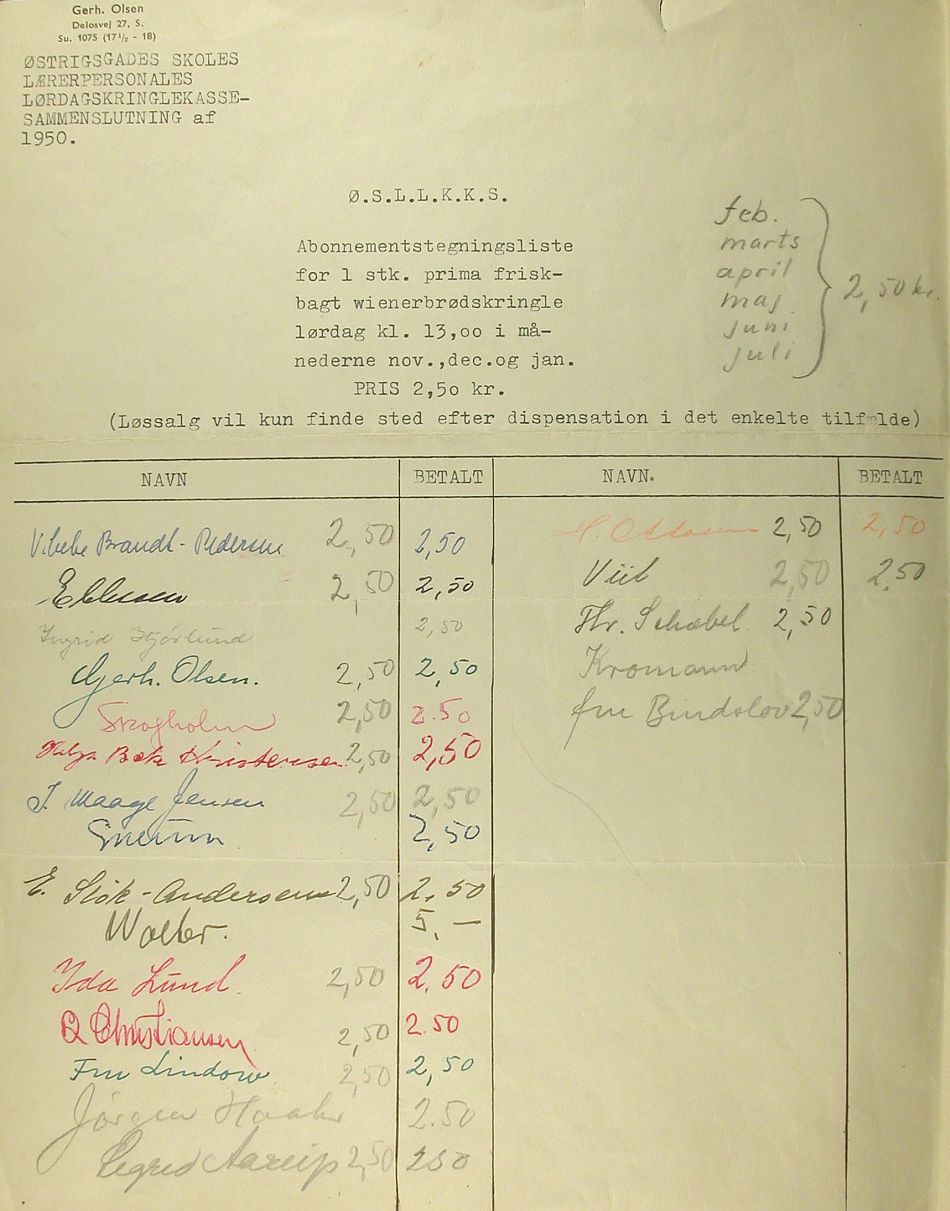 Gerh. Olsen
Delosvej 27, S.
Su. 1075 (17½ - 18)
ØSTRIGSGADES SKOLES
LÆRERPERSONALES
LØRDAGSKRINGLEKASSE-
SAMMENSLUTNING af
1950.
Ø.S.L.L.K.K.S.
Abonnementstegningsliste
for 1 stk. prima frisk-
bagt wienerbrødskringle
lørdag kl. 13,oo i må-
nederne nov.,dec.og jan.
PRIS 2,5o kr.
feb.
marts
april
maj
juni
juli
2,50 kr.
(Løssalg vil kun finde sted efter dispensation i det enkelte tilfælde)
NAVN BETALT NAVN. BETALT
Vibeke Brandt-Pedersen 2,50 2,50
Ebbesen 2,50 2,50
Ingrid Hjórlund 2,50
Gerh. Olsen. 2,50 2,50
Skogholm 2,50 2.50
Helga Bæk Kristensen 2,50 2,50
J. Maage Jensen 2,50 2,50
2,50
E. Stok-Andersen 2,50 2,50
Wolter. 5,—
Ida Lund. 2,50 2,50
Christiansen 2,50 2.50
Fru Lindow 2,50 2,50
Jørgen 2.50
Sigrid 2,50 250
H. Ottosen 2,50 2,50
Viit 2,50 2,50
Hr. Schæbel 2,50
Kromann
fru Bindslov 2,50